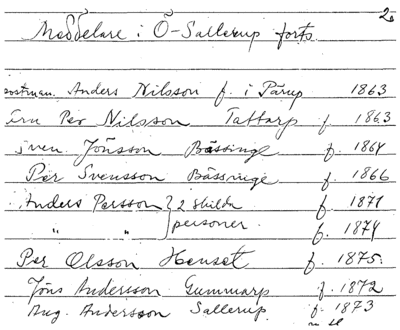 2.
Meddelare i Ö-Sallerup forts
postman. Anders Nilsson f. i Pårup 1863
Per Nilsson Tattarp f. 1863
Sven Jönsson Bässinge f. 1864
Per Svensson Bässinge f. 1866
Anders Persson } 2 skilda f. 1871
" " } personer f. 1874
Per Olsson Heuset f. 1875.
Jöns Andersson Gummarp f. 1872
Aug. Andersson Sallerup f. 1873